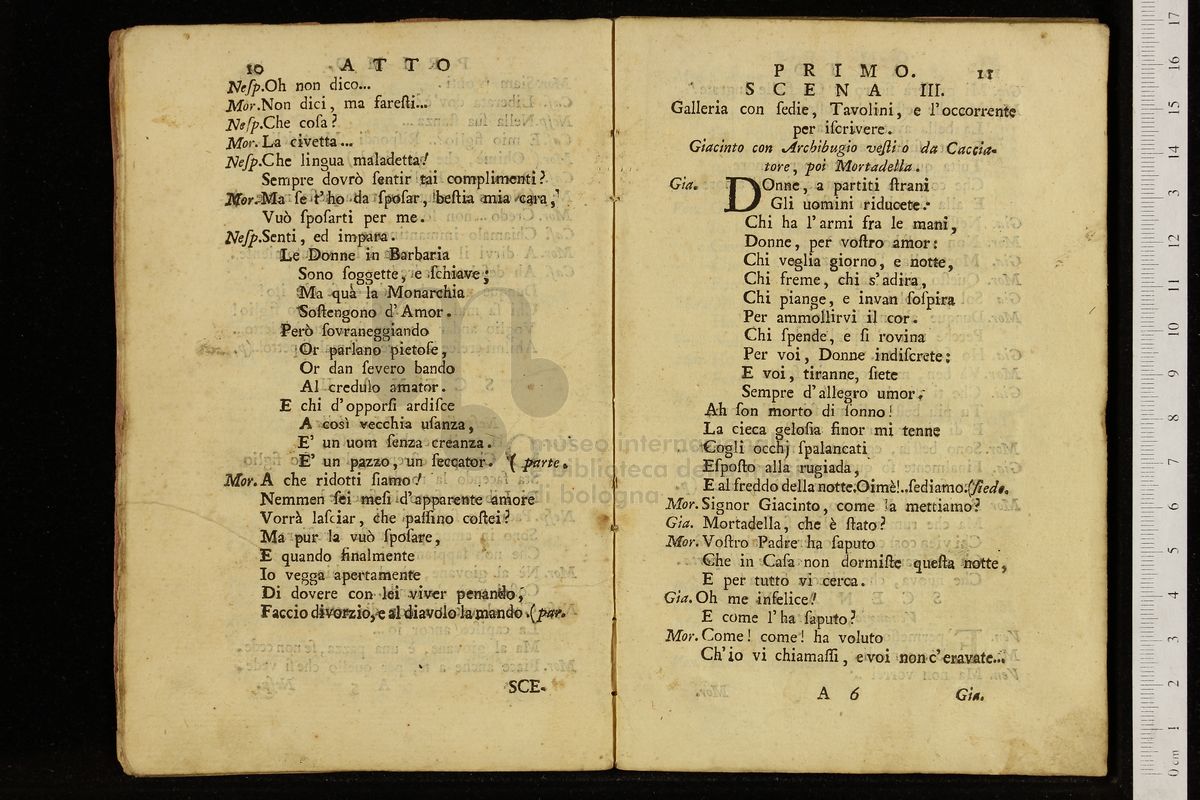 10 ATTO
Neſp.Oh non dico...
Mor.Non dici, ma fareſti...
Neſp.Che coſa?
Mor. La civetta...
Neſp.Che lingua maladetta!
Sempre dovrò ſentir tai complimenti?
Mor.Ma ſe t'ho da ſpoſar, beſtia mia cara,
Vuò ſpoſarti per me.
Neſp.Senti, ed impara.
Le Donne in Barbaria
Sono ſoggette, e ſchiave;
Ma quà la Monarchia
Soſtengono d'Amor.
Però ſovraneggiando
Or parlano pietoſe,
Or dan ſevero bando
Al credulo amator.
E chi d'opporſi ardiſce
A così vecchia uſanza,
E' un uom ſenza creanza.
E' un pazzo, un ſeccator. (parte.
Mor. A che ridotti ſiamo!
Nemmen ſei meſi d'apparente amore
Vorrà laſciar, che paſſino coſtei?
Ma pur la vuò ſpoſare,
E quando finalmente
Io vegga apertamente
Di dovere con lei viver penando,
Faccio divorzio, e al diavolo la mando.(par.
SCE-
PRIMO. 11
SCENA III.
Galleria con ſedie, Tavolini, e l'occorrente
per iſcrivere.
Giacinto con Archibugio veſtito da Caccia-
tore, poi Mortadella.
Gia. DOnne, a partiti ſtrani
Gli uomini riducete:
Chi ha l'armi fra le mani,
Donne, per voſtro amor:
Chi veglia giorno, e notte,
Chi freme, chi s'adira,
Chi piange, e invan ſoſpira
Per ammollirvi il cor.
Chi ſpende, e ſi rovina
Per voi, Donne indiſcrete;
E voi, tiranne, ſiete
Sempre d'allegro umor.
Ah ſon morto di ſonno!
La cieca geloſia finor mi tenne
Cogli occhj ſpalancati
Eſpoſto alla rugiada,
E al freddo della notte. Oimè!..ſediamo.(ſiede.
Mor. Signor Giacinto, come la mettiamo?
Gia. Mortadella, che è ſtato?
Mor. Voſtro Padre ha ſaputo
Che in Caſa non dormiſte queſta notte,
E per tutto vi cerca.
Gia. Oh me infelice!
E come l'ha ſaputo?
Mor. Come! come! ha voluto
Ch'io vi chiamaſſi, e voi non c'eravate...
A 6 Gia.
museo internazionale
e biblioteca della musica
di bologna